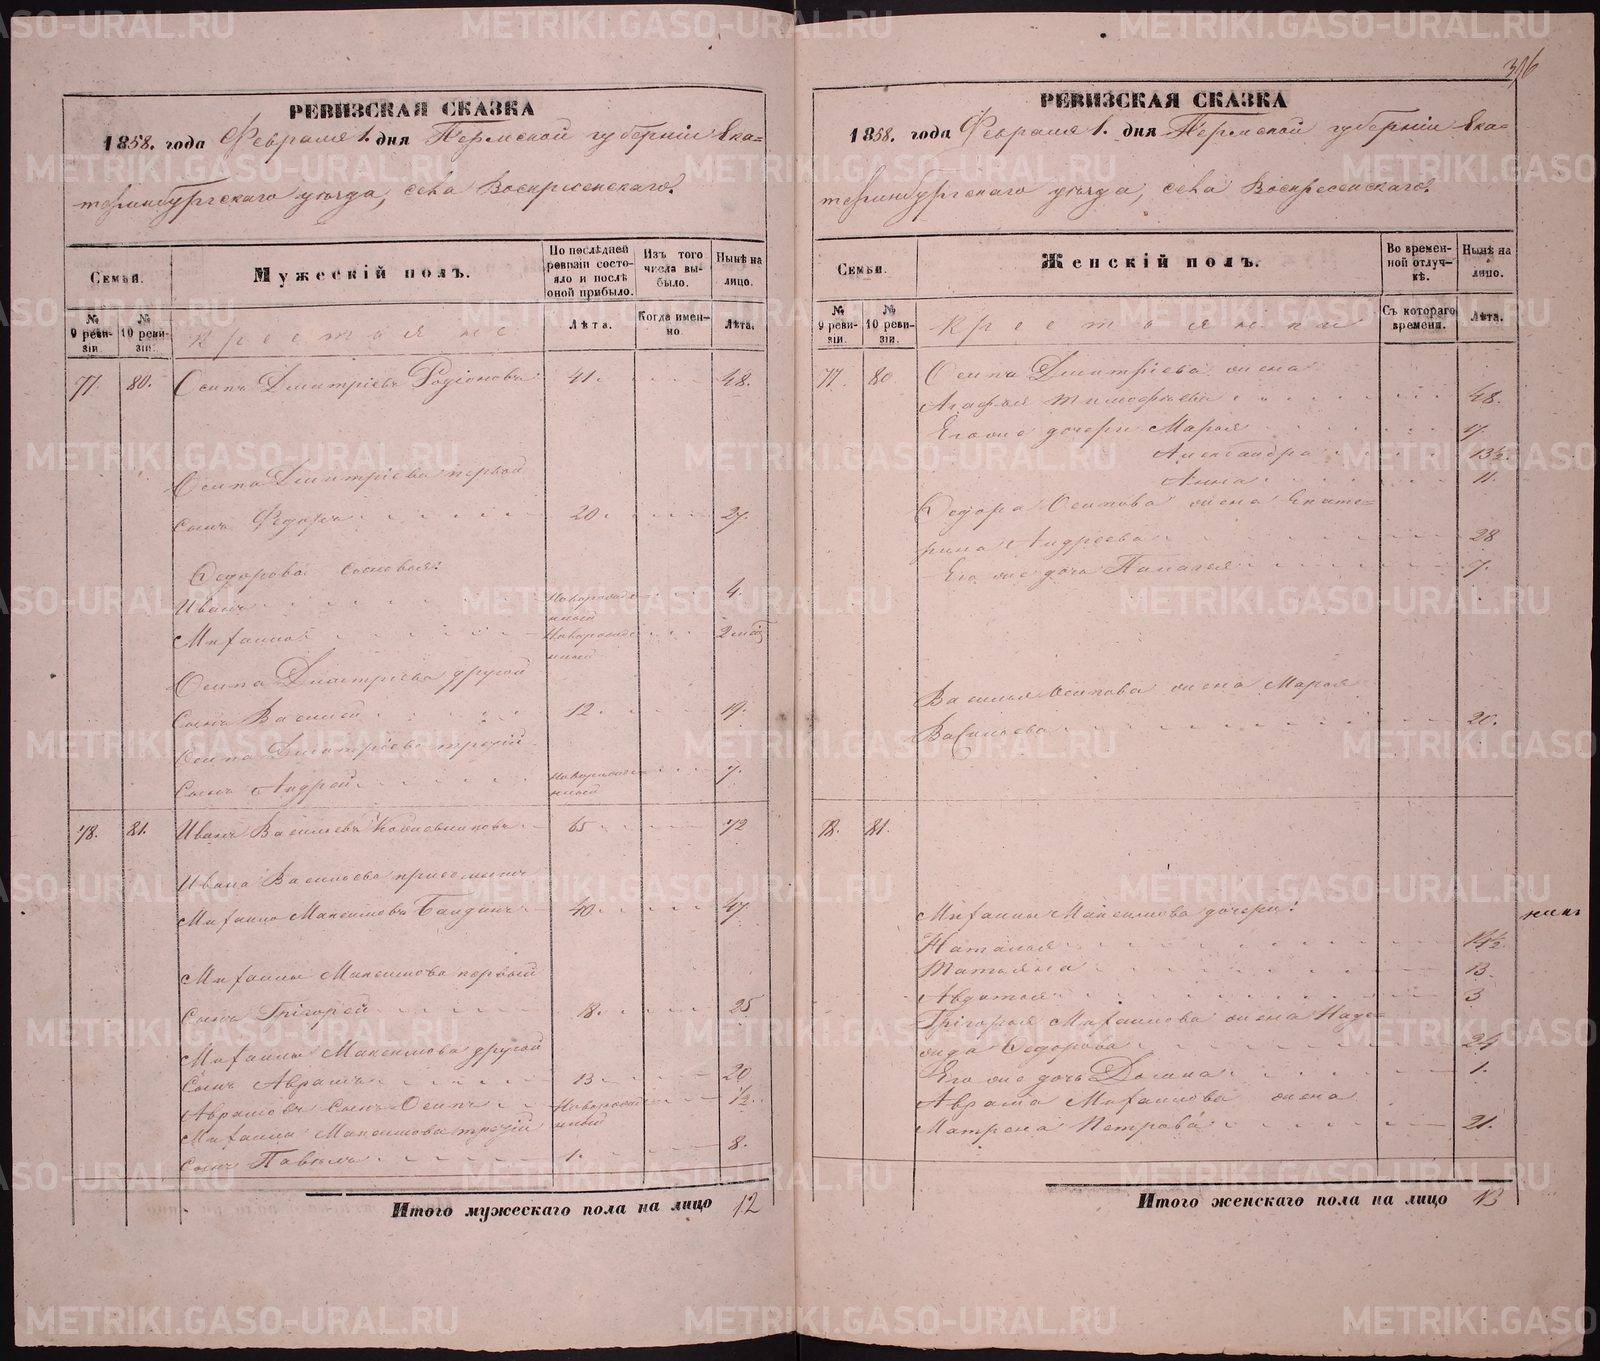 РЕВИЗСКАЯ СКАЗКА
1858. года Февраля 1. дня Пермской губерніи Ека=
теринбургскаго уѣзда, села Воскресенскаго.
Семьи.
Мужескій полъ.
По послѣдней ревизіи состояло и послѣ оной прибыло.
Изъ того числа выбыло.
Нынѣ на лицо.
№ 9 ревизіи
№ 10 ревизіи.
Крестьяне
Лѣта.
Когда именно.
Лѣта.
77. 80. Осипъ Дмитріевъ Родіоновъ 41. 48.
Осипа Дмитріева первой
сынъ Федоръ 20. 27.
Федорова сыновья:
Иванъ Новорожденный 4.
Михаилъ Новорожденный 2 мѣс.
Осипа Дмитріева другой
Сынъ Василей 12. 19.
Осипа Дмитріева третій
Сынъ Андрей Новорожденный 7.
78. 81. Иванъ Васильевъ 65. 72
Ивана Васильева пріемышъ
Михаило Максимовъ 40. 47
Михаилы Максимова первый
Сынъ Грігорей 18. 25
Михаилы Максимова другой
Сынъ Аврамъ 13. 20
Аврамовъ Сынъ Осипъ Новорожденный 1/2.
Михаилы Максимова третій
Сынъ Павелъ 1. 8.
Итого мужескаго пола на лицо 12
РЕВИЗСКАЯ СКАЗКА
1858. года Февраля 1. дня Пермской губерніи Ека=
теринбургскаго уѣзда, села Воскресенскаго.
Семьи.
Женскій полъ.
Во временной отлучкѣ.
Нынѣ на лицо.
№ 9 ревизіи.
№ 10 ревизіи.
Крестьянки
Съ котораго времени.
Лѣта.
77. 80 Осипа Дмитріева жена
Агафья Тимофѣева 48.
Его же дочери Марья 17.
Александра 13½.
Анна 11.
Федора Осипова жена Екате=
рина Андреева 28
Его же дочь Палагея 7.
Василья Осипова жена Марья
Васильева 20.
78. 81. Михаилы Максимова дочери:
Наталья 14½.
Татьяна 13.
Авдотья 3
Грігорья Михаилова жена Наде=
жда Федорова 24
Его же дочь Домна 1.
Аврама Михаилова жена
Матрена Петрова 21.
Итого женскаго пола на лицо 13